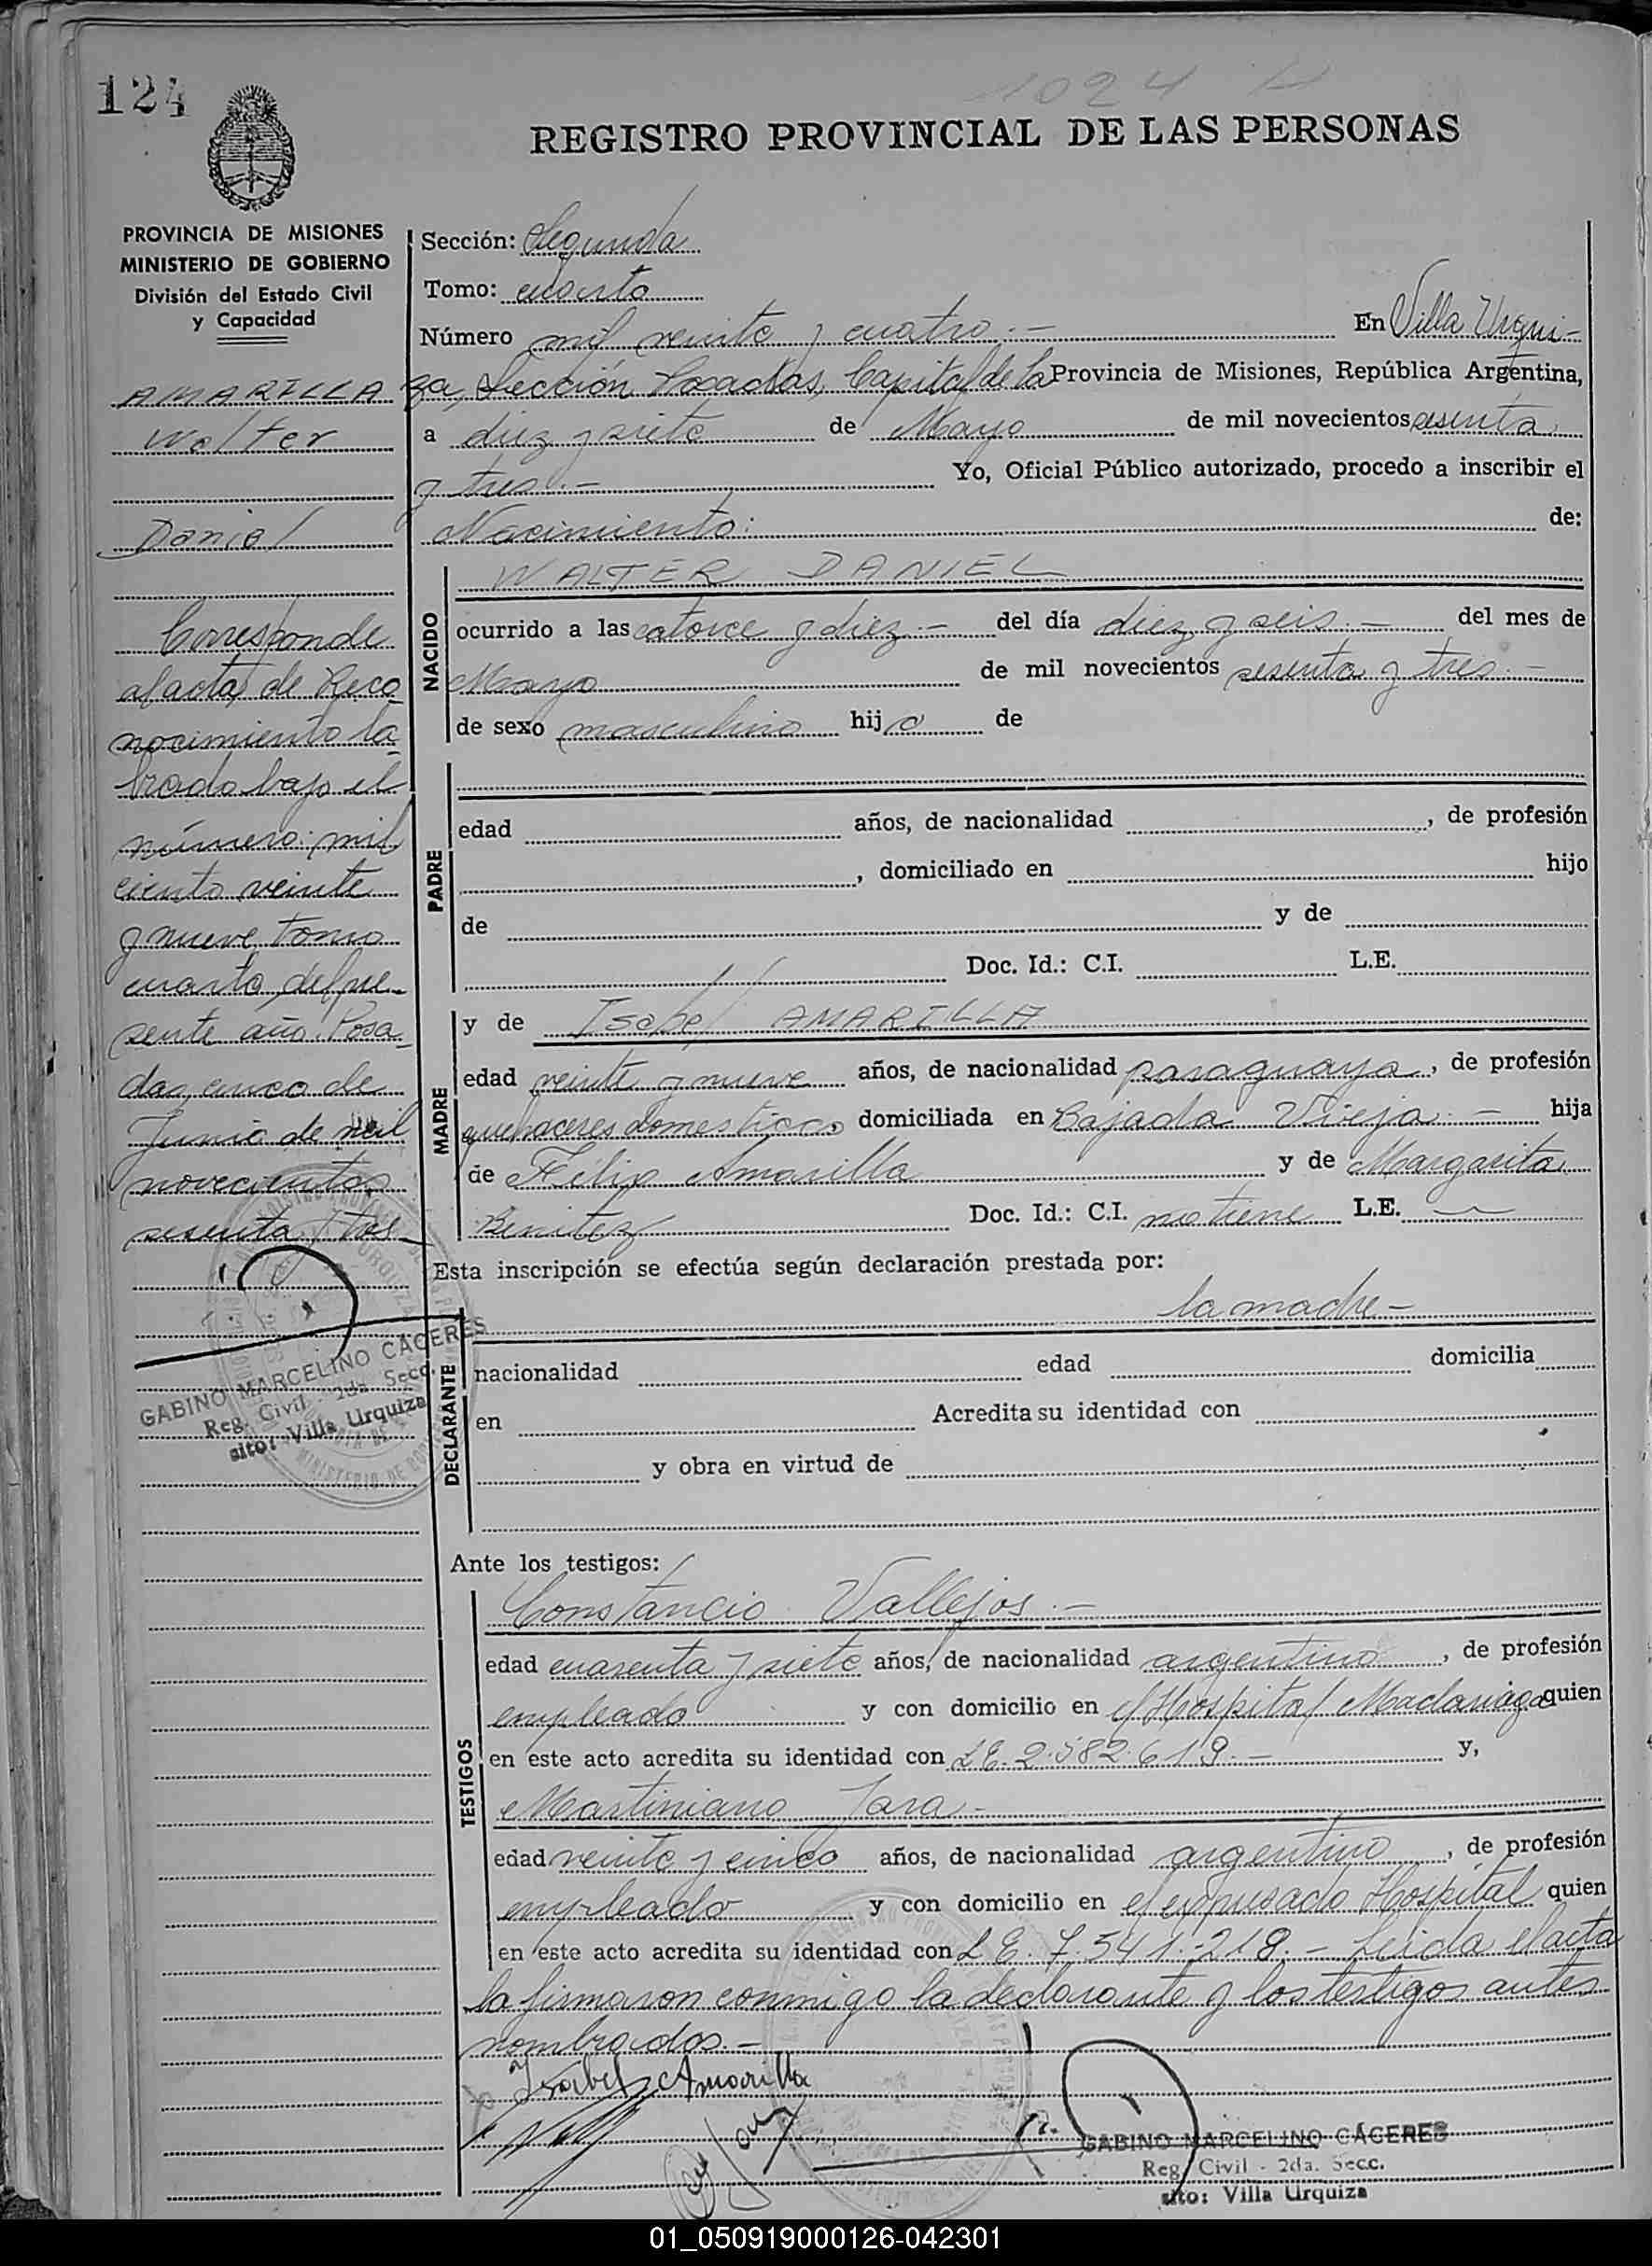 124
1024
REGISTRO PROVINCIAL DE LAS PERSONAS
PROVINCIA DE MISIONES
MINISTERIO DE GOBIERNO
División del Estado Civil
y Capacidad
AMARILLA
Walter
Daniel
Corresponde
al acta de Reco
nocimiento la
brado bajo el
número: mil
ciento veinte
y nueve, tomo
cuarto del pre-
sente año. Posa
das, cinco de
Junio de mil
novecientos
sesenta y tres
GABINO MARCELINO CÁCERES
Reg. Civil - 2da. Secc.
sito: Villa Urquiza
Sección: Segunda
Tomo: cuarto
Número mil veinte y cuatro.- En Villa Urqui-
za, Sección Posadas, Capital de la Provincia de Misiones, República Argentina,
a diez y siete de Mayo de mil novecientos sesenta
y tres.- Yo, Oficial Público autorizado, procedo a inscribir el
Nacimiento: de:
NACIDO
WALTER DANIEL
ocurrido a las catorce y diez.- del día diez y seis.- del mes de
Mayo de mil novecientos sesenta y tres.-
de sexo masculino hijo de
PADRE
edad años, de nacionalidad , de profesión
, domiciliado en hijo
de y de
Doc. Id.: C.I. L.E.
MADRE
y de Isabel AMARILLA
edad veinte y nueve años, de nacionalidad paraguaya, de profesión
quehaceres domesticos domiciliada en Bajada Vieja.- hija
de Felip Amarilla y de Margarita
Benitez Doc. Id.: C.I. no tiene L.E.
Esta inscripción se efectúa según declaración prestada por:
la madre-
DECLARANTE
nacionalidad edad domicilia
en Acredita su identidad con
y obra en virtud de
Ante los testigos:
TESTIGOS
Constancio Vallejos.-
edad cuarenta y siete años, de nacionalidad argentino, de profesión
empleado y con domicilio en el Hospital Madariaga quien
en este acto acredita su identidad con L.E. 2.582.619.- y,
Martiniano Jara.-
edad veinte y cinco años, de nacionalidad argentino, de profesión
empleado y con domicilio en el expresado Hospital quien
en este acto acredita su identidad con L.E. 7.541.-218.- Leida el acta
la firmaron conmigo la declarante y los testigos antes
nombrados.-
Isabel Amarilla
GABINO MARCELINO CÁCERES
Reg. Civil - 2da. Secc.
sito: Villa Urquiza
01_050919000126-042301